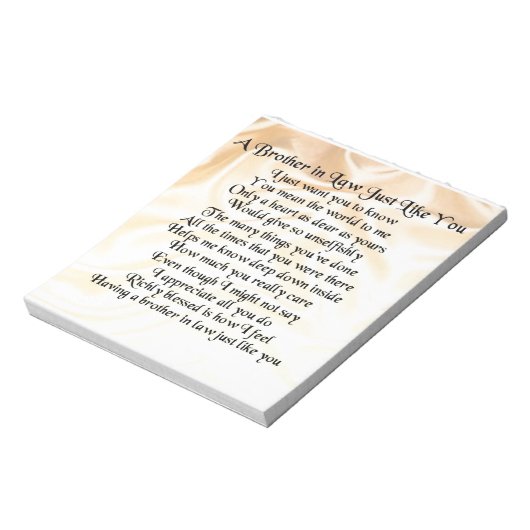 A Brother in Law Just Like You
I just want you to know
You mean the world to me
Only a heart as dear as yours
Would give so unselfishly
The many things you've done
All the times that you were there
Helps me know deep down inside
How much you really care
Even though I might not say
I appreciate all you do
Richly blessed is how I feel
Having a brother in law just like you